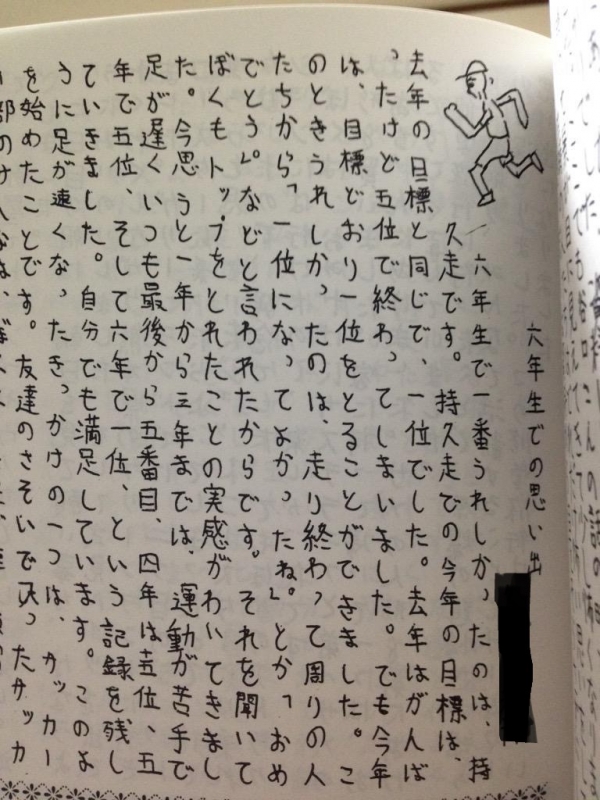 六年生での思い出
六年生で一番うれしかったのは、持
久走です。持久走での今年の目標は、
去年の目標と同じで、一位でした。去年はがんば
ったけど五位で終わってしまいました。でも今年
は、目標どおり一位をとることができました。こ
のときうれしかったのは、走り終わって周りの人
たちから「一位になってよかったね。」とか「おめ
でとう。」などと言われたからです。それを聞いて
ぼくもトップをとれたことの実感がわいてきまし
た。今思うと一年から三年までは、運動が苦手で
足が遅くいつも最後から五番目、四年は五位、五
年で五位、そして六年で一位、という記録を残し
ていきました。自分でも満足しています。このよ
うに足が速くなったきっかけの一つは、サッカー
を始めたことです。友達のさそいで入ったサッカ